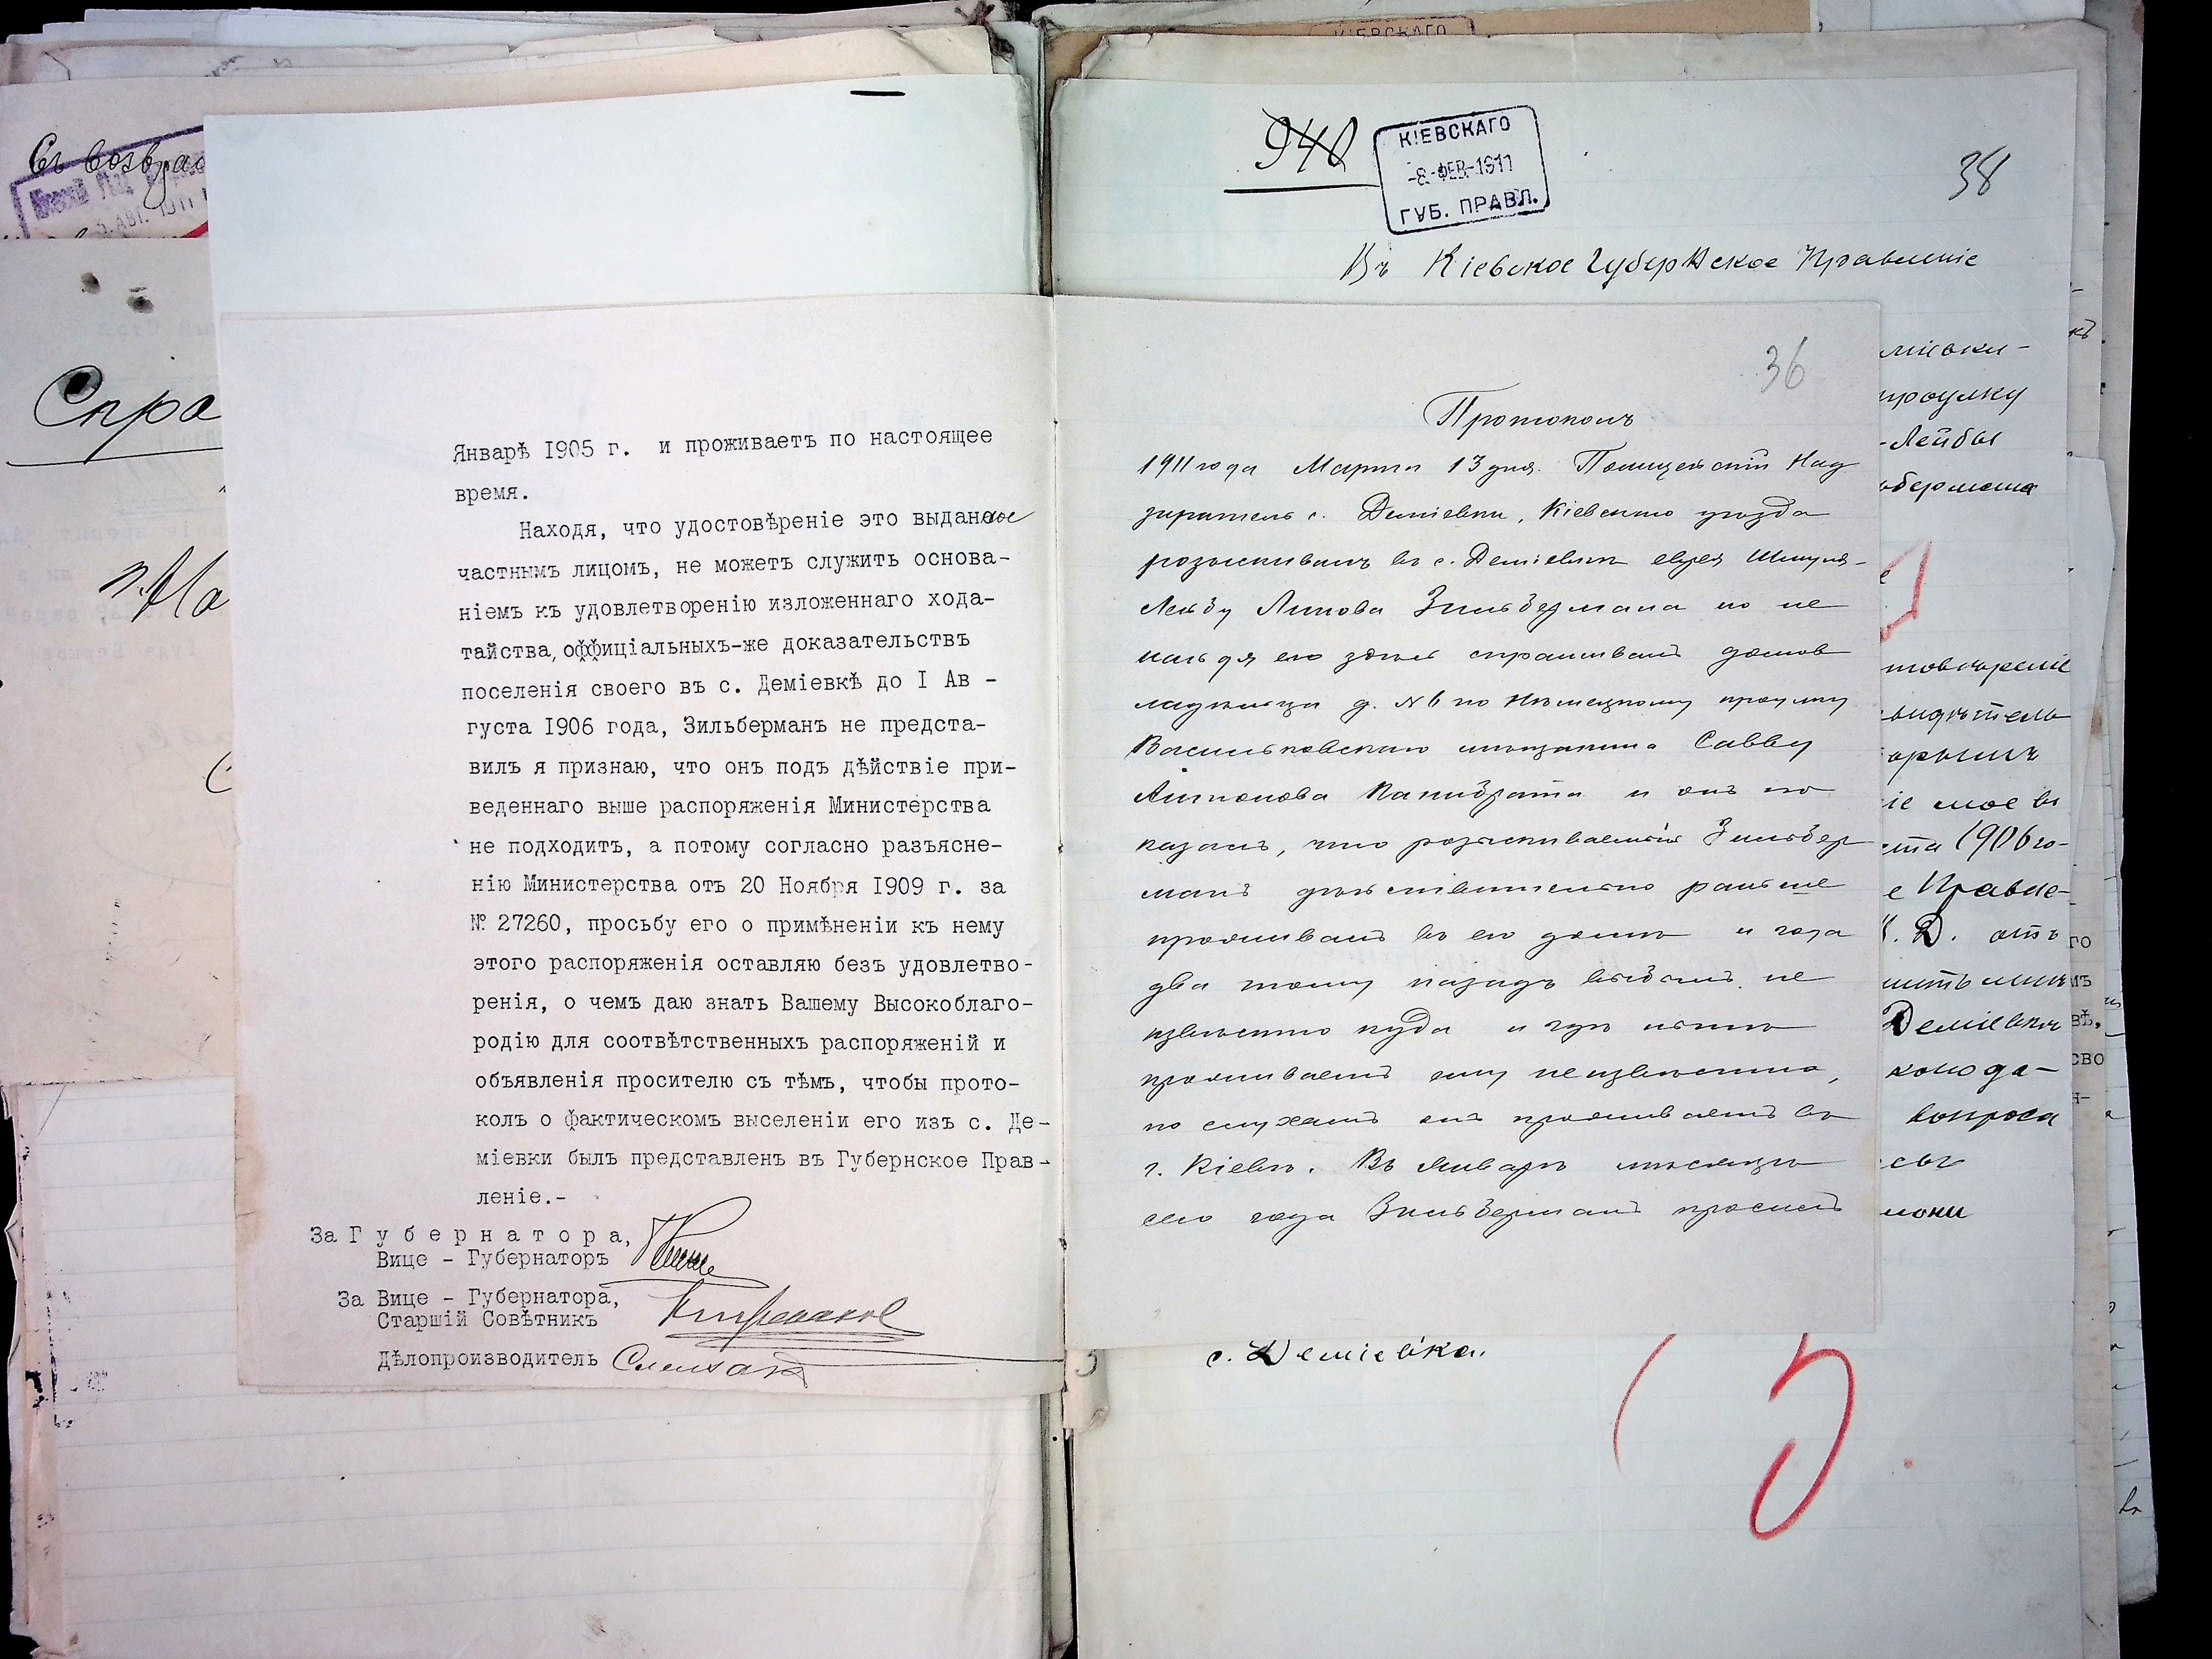 Съ возврас
5. АВГ. 1911
Спра
Январѣ 1905 г. и проживаетъ по настоящее
время.
Находя, что удостовѣреніе это выданное
частнымъ лицомъ, не можетъ служить основа-
ніемъ къ удовлетворенію изложеннаго хода-
тайства, оффиціальныхъ-же доказательствъ
поселенія своего въ с. Деміевкѣ до I Ав -
густа 1906 года, Зильберманъ не предста-
вилъ я признаю, что онъ подъ дѣйствіе при-
веденнаго выше распоряженія Министерства
не подходитъ, а потому согласно разъясне-
нію Министерства отъ 20 Ноября 1909 г. за
№ 27260, просьбу его о примѣненіи къ нему
этого распоряженія оставляю безъ удовлетво-
ренія, о чемъ даю знать Вашему Высокоблаго-
родію для соотвѣтственныхъ распоряженій и
объявленія просителю съ тѣмъ, чтобы прото-
колъ о фактическомъ выселеніи его изъ с. Де-
міевки былъ представленъ въ Губернское Прав-
леніе.-
За Губернатора,
Вице - Губернаторъ
За Вице - Губернатора,
Старшій Совѣтникъ
Дѣлопроизводитель
КІЕВСКАГО
940
КІЕВСКАГО
-8-ФЕВ-1911
ГУБ. ПРАВЛ.
38
Въ Кіевское Губернское Правленіе
36
Протоколъ
1911 года Марта 13 дня. Полицейскій Над
зиратель с. Деміевки, Кіевскаго уѣзда
розыскивалъ въ с. Деміевкѣ еврея Шмуля-
Лейбу Липова Зильбермана но не
найдя его здѣсь спрашивалъ домов
ладѣльца д. №6 по Нѣмецкому проулку
Васильковскаго мѣщанина Савву
Антонова и онъ по
казалъ, что розыскиваемый Зильбер
манъ дѣйствительно раньше
проживалъ въ его домѣ и года
два тому назадъ выбылъ не
извѣстно куда и гдѣ нынѣ
проживаетъ ему неизвѣстно,
по слухамъ онъ проживаетъ въ
г. Кіевѣ. Въ Январѣ мѣсяцѣ
сего года Зильберманъ просилъ
міевки-
проулку
-Лейбы
ьбермана
товѣреніе
видѣтель
орымъ
іе мое въ
ста 1906 го-
е Правле-
. Д. отъ
Деміевкѣ
конода-
вопроса
с. Деміевка.